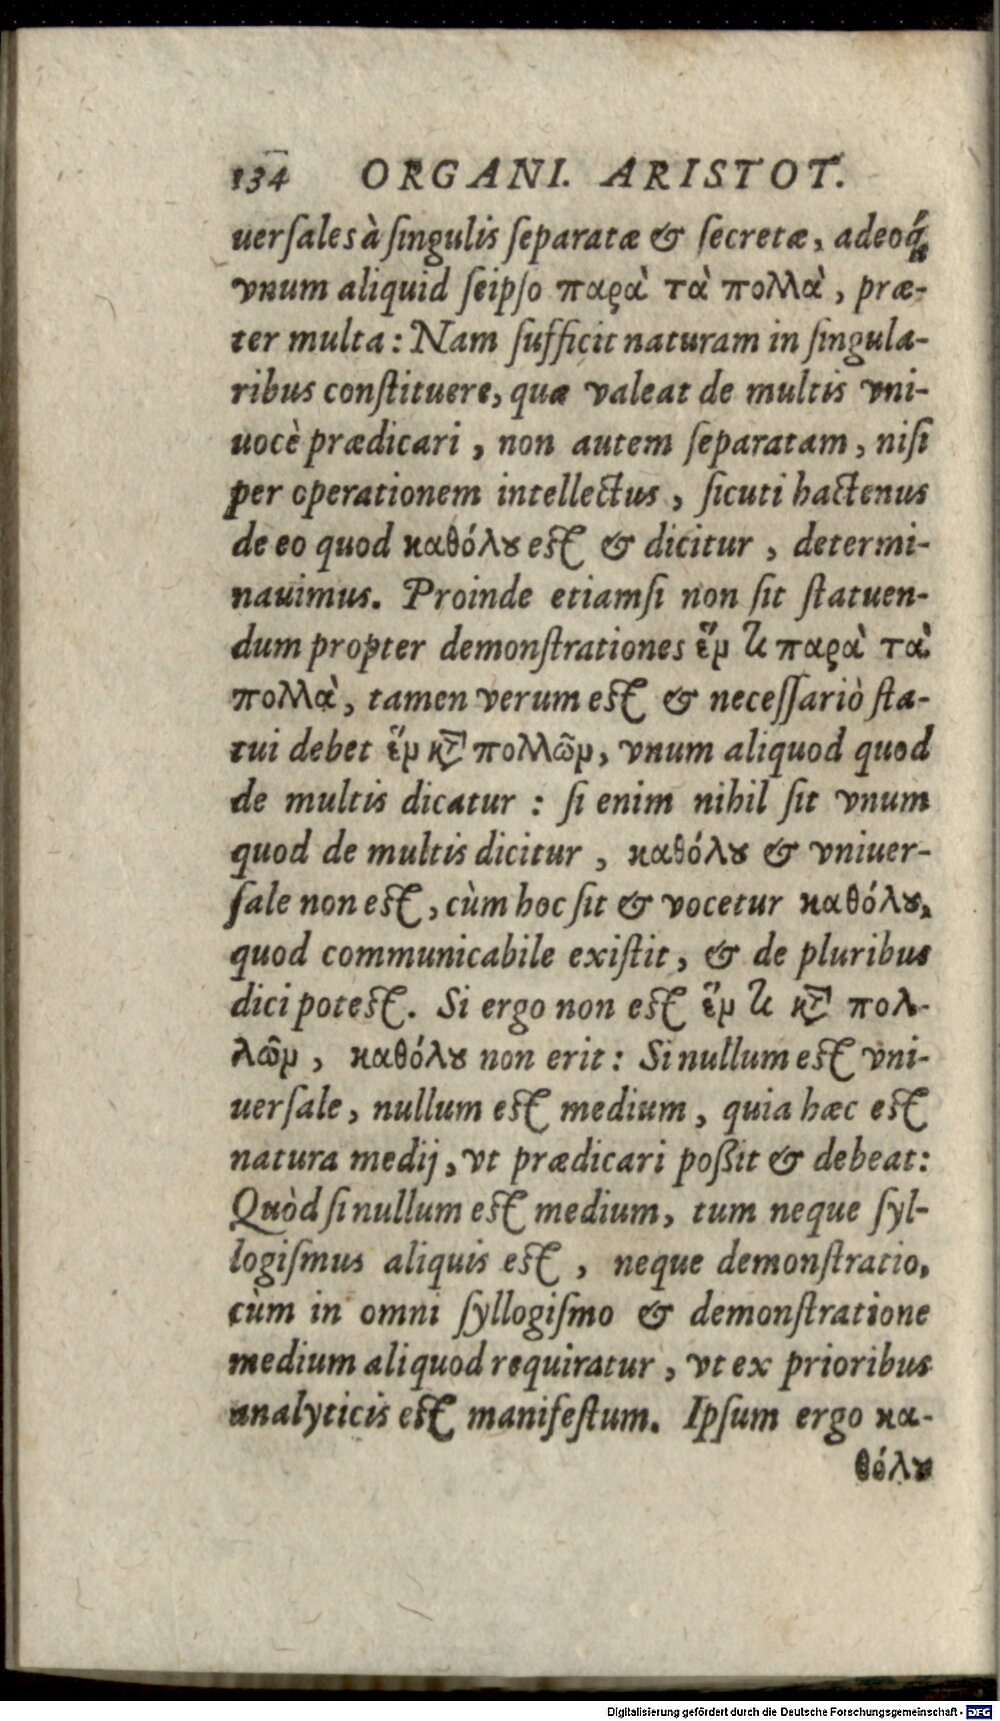 134 ORGANI. ARISTOT.
uerſales à ſingulis ſeparatæ & ſecretæ, adeoq́;
vnum aliquid ſeipſo παρὰ τὰ πολλὰ, præ-
ter multa: Nam ſufficit naturam in ſingula-
ribus conſtituere, quæ valeat de multis vni-
uocè prædicari, non autem ſeparatam, niſi
per operationem intellectus, ſicuti hactenus
de eo quod καθόλȣ est & dicitur, determi-
nauimus. Proinde etiamſi non ſit ſtatuen-
dum propter demonſtrationes ἓν τι παρὰ τὰ
πολλὰ, tamen verum est & neceſſariò ſta-
tui debet ἓν κτ̀ πολλῶν, vnum aliquod quod
de multis dicatur: ſi enim nihil ſit vnum
quod de multis dicitur, καθόλȣ & vniuer-
ſale non est, cùm hoc ſit & vocetur καθόλȣ,
quod communicabile exiſtit, & de pluribus
dici potest. Si ergo non est ἓν τι κτ̀ πολ-
λῶν, καθόλȣ non erit: Si nullum est vni-
uerſale, nullum est medium, quia hæc est
natura medij, vt prædicari poßit & debeat:
Quòd ſi nullum est medium, tum neque ſyl-
logiſmus aliquis est, neque demonſtratio,
cùm in omni ſyllogiſmo & demonſtratione
medium aliquod requiratur, vt ex prioribus
analyticis est manifeſtum. Ipſum ergo κα-
θόλȣ
Digitalisierung gefördert durch die Deutsche Forschungsgemeinschaft - DFG